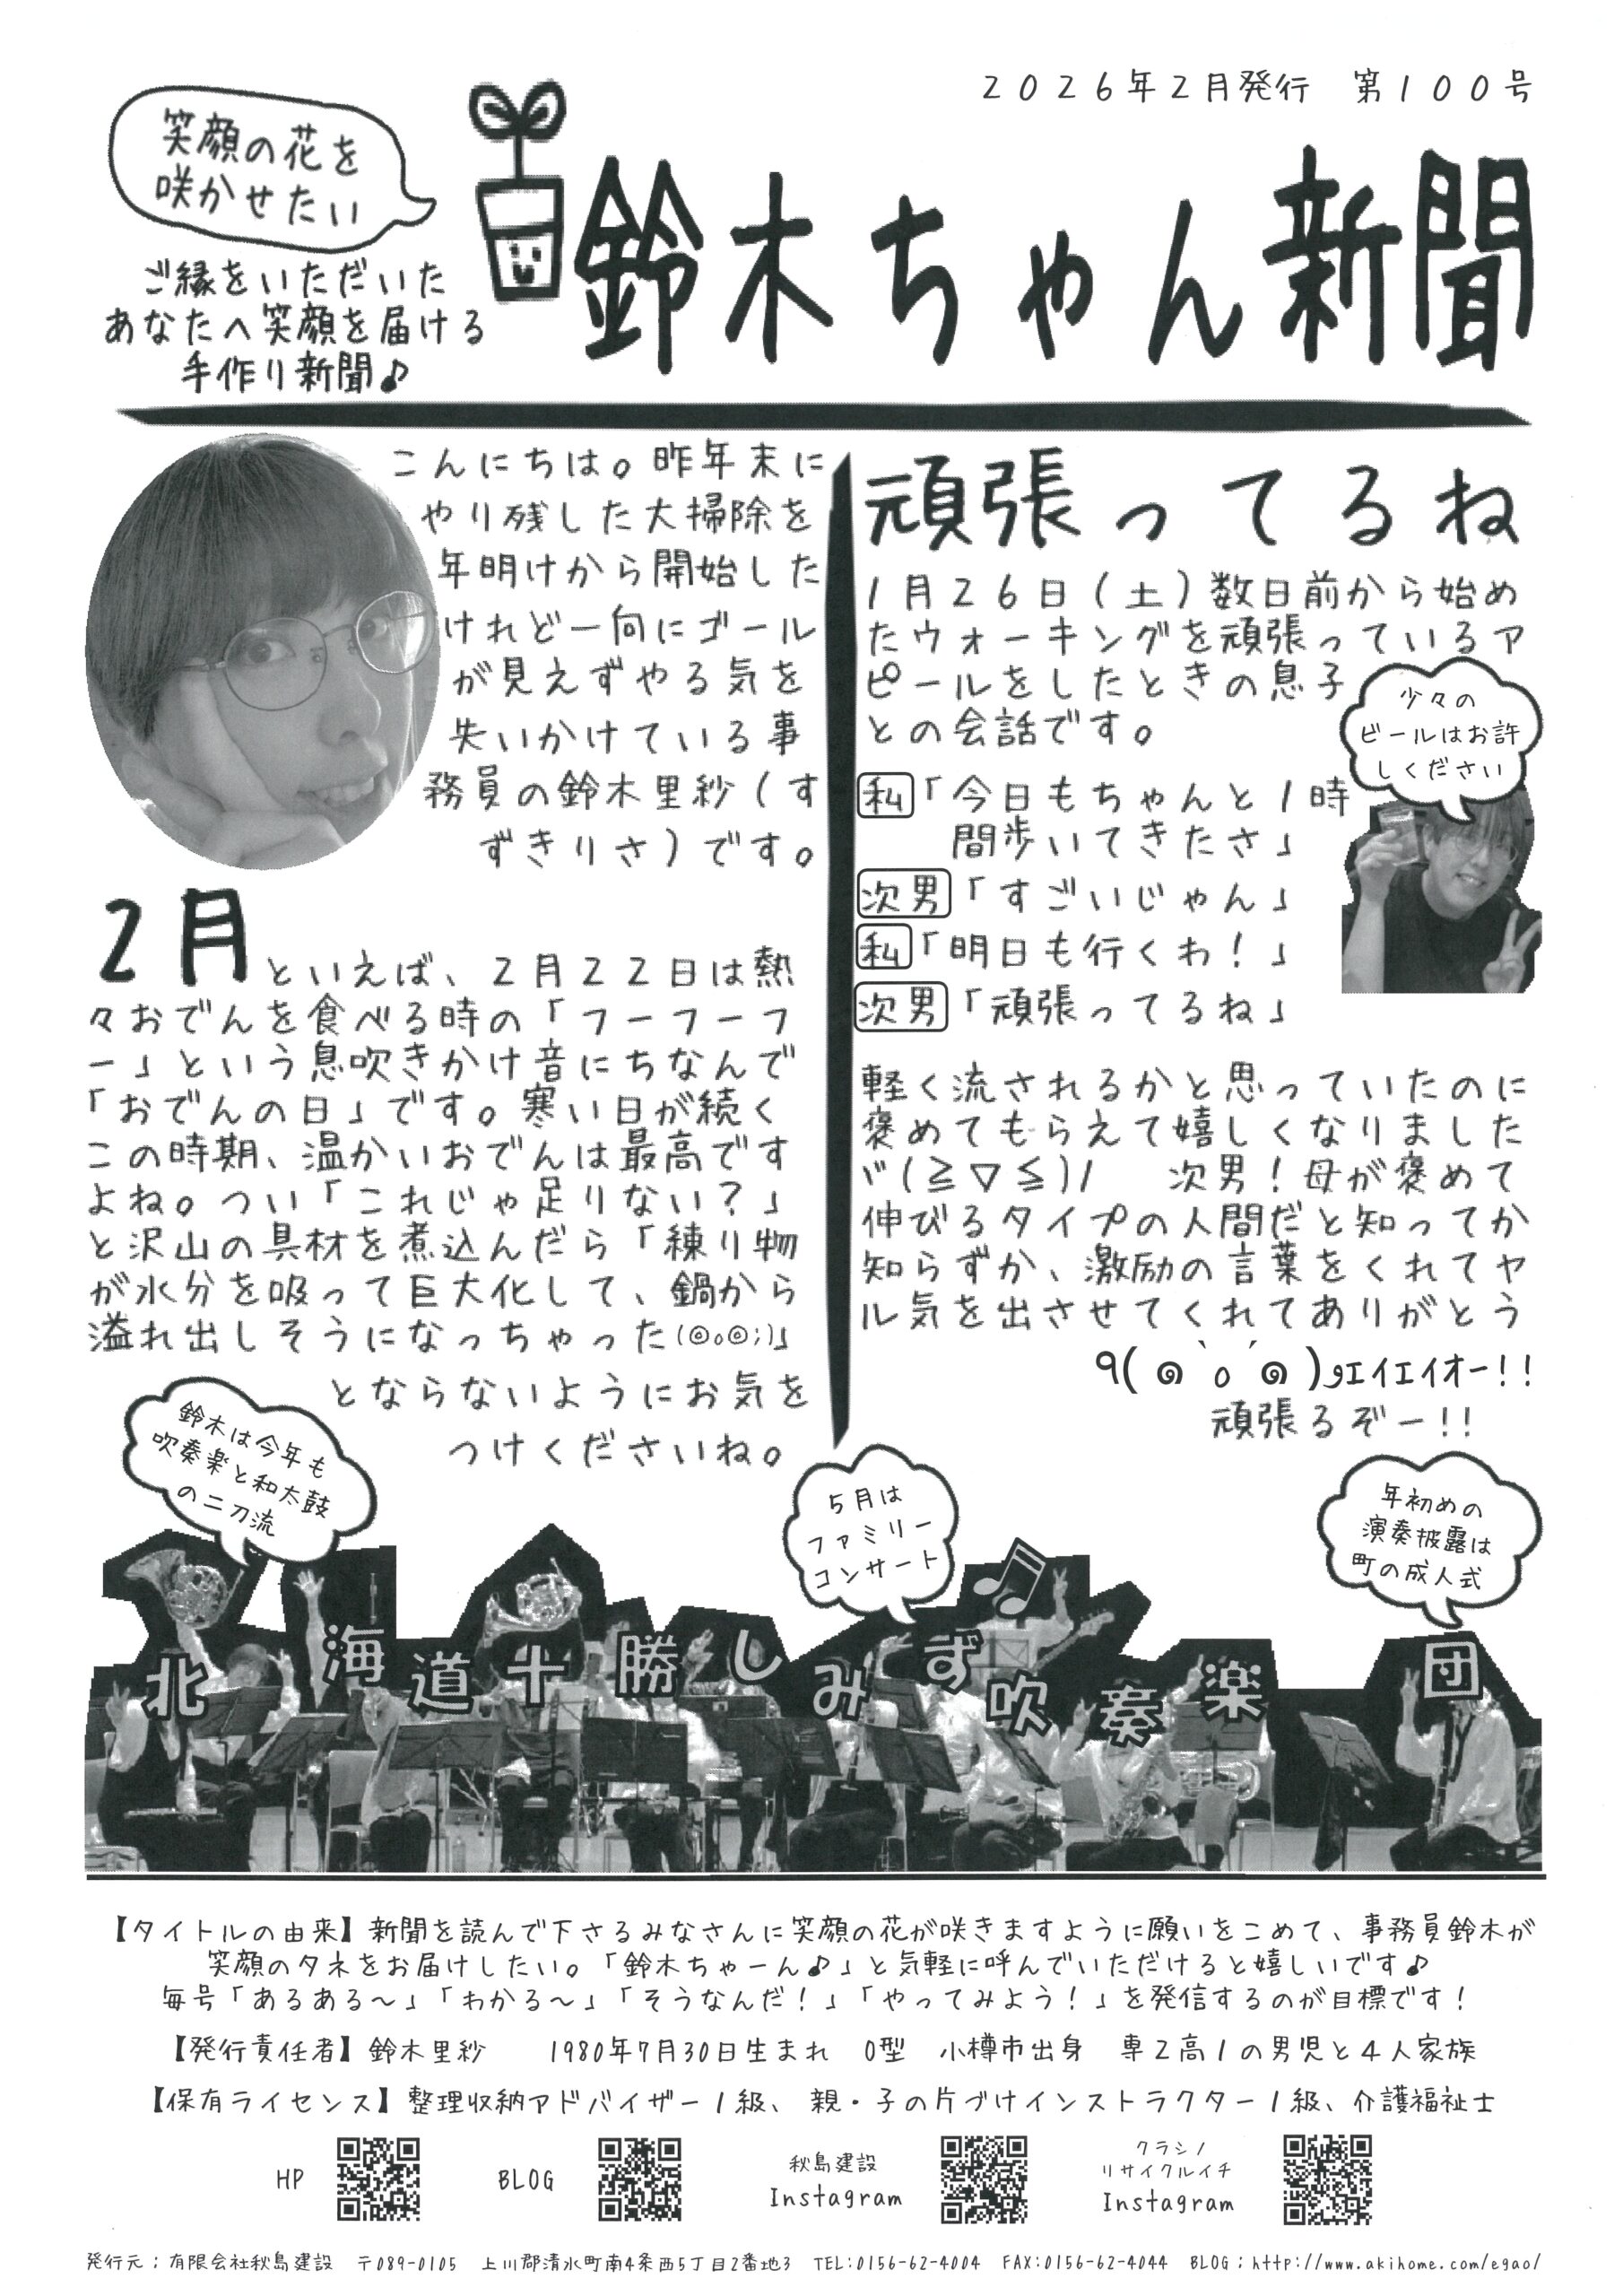 2026年2月発行　第100号
笑顔の花を
咲かせたい
鈴木ちゃん新聞
ご縁をいただいた
あなたへ笑顔を届ける
手作り新聞♪
こんにちは。昨年末に
やり残した大掃除を
年明けから開始した
けれど一向にゴール
が見えずやる気を
失いかけている事
務員の鈴木里紗(す
ずきりさ)です。
2月
といえば、2月22日は熱
々おでんを食べる時の「フーフーフ
ー」という息吹きかけ音にちなんで
「おでんの日」です。寒い日が続く
この時期、温かいおでんは最高です
よね。つい「これじゃ足りない?」
と沢山の具材を煮込んだら「練り物
が水分を吸って巨大化して、鍋から
溢れ出しそうになっちゃった(◎o◎;)」
とならないようにお気を
つけくださいね。
頑張ってるね
1月26日(土)数日前から始め
たウォーキングを頑張っているア
ピールをしたときの息子
との会話です。
少々の
ビールはお許
しください
私「今日もちゃんと1時
間歩いてきたさ」
次男「すごいじゃん」
私「明日も行くわ!」
次男「頑張ってるね」
軽く流されるかと思っていたのに
褒めてもらえて嬉しくなりました
ヾ(≧▽≦)ﾉ　次男!母が褒めて
伸びるタイプの人間だと知ってか
知らずか、激励の言葉をくれてヤ
ル気を出させてくれてありがとう
٩(๑`o´๑)وｴｲｴｲｵｰ!!
頑張るぞー!!
鈴木は今年も
吹奏楽と和太鼓
の二刀流
5月は
ファミリー
コンサート
年初めの
演奏披露は
町の成人式
北海道十勝しみず吹奏楽団
【タイトルの由来】新聞を読んで下さるみなさんに笑顔の花が咲きますように願いをこめて、事務員鈴木が
笑顔のタネをお届けしたい。「鈴木ちゃーん♪」と気軽に呼んでいただけると嬉しいです♪
毎号「あるある～」「わかる～」「そうなんだ!」「やってみよう!」を発信するのが目標です!
【発行責任者】鈴木里紗　1980年7月30日生まれ　O型　小樽市出身　専2高1の男児と4人家族
【保有ライセンス】整理収納アドバイザー1級、親・子の片づけインストラクター1級、介護福祉士
HP
BLOG
秋島建設
Instagram
クラシノ
リサイクルイチ
Instagram
発行元；有限会社秋島建設　〒089-0105　上川郡清水町南4条西5丁目2番地3　TEL:0156-62-4004　FAX:0156-62-4044　BLOG；http://www.akihome.com/egao/